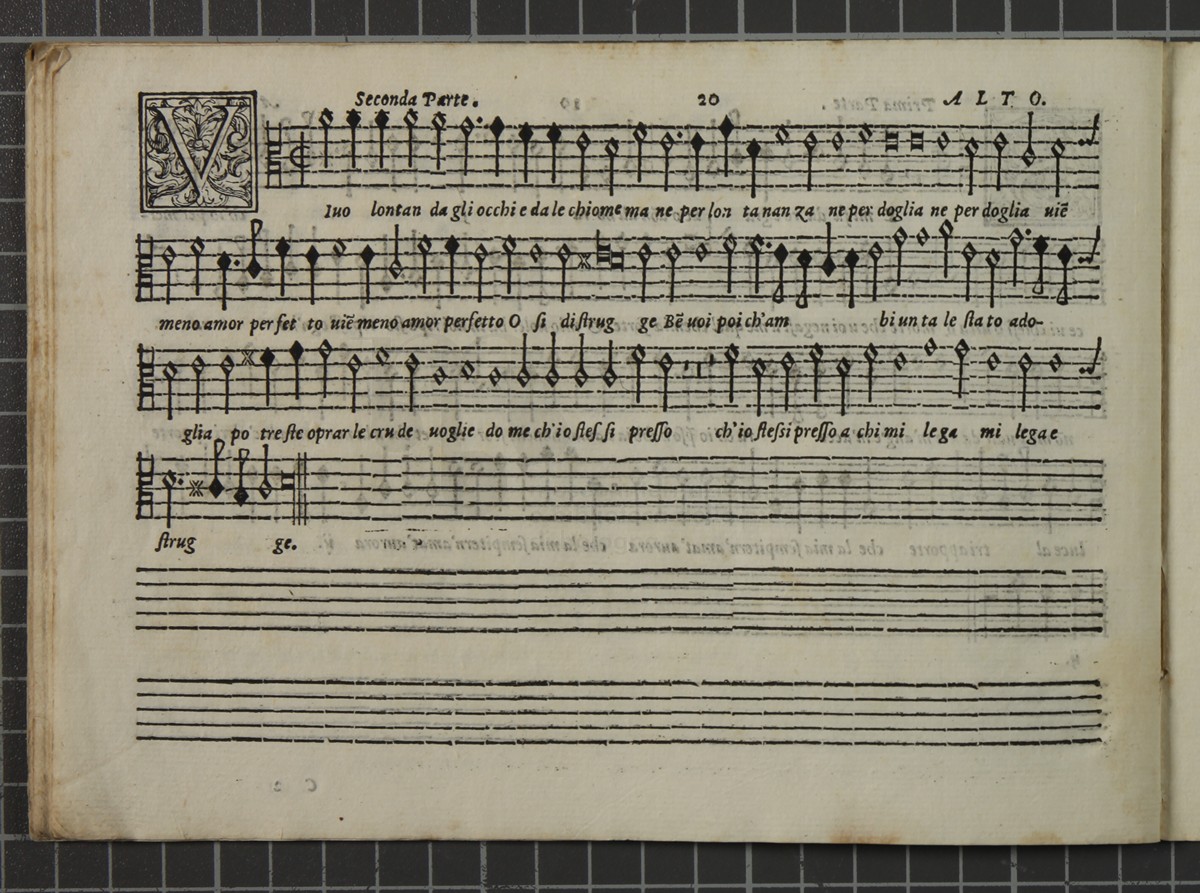 Seconda Parte. 20 ALTO.
V
Iuo lontan da gli occhi e da le chiome ma ne per lon ta nan za ne per doglia ne per doglia uiẽ
meno amor perfet to uiẽ meno amor perfetto O si distrug ge Bẽ uoi poi ch'am bi un ta le sta to ado-
glia po tre ste oprar le cru de uoglie do me ch'io stes si presso ch'io stessi presso a chi mi le ga mi lega e
strug ge.